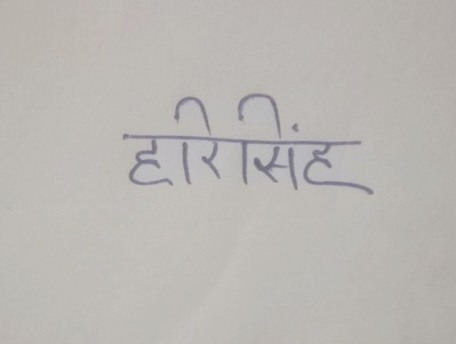 हरिसिंह